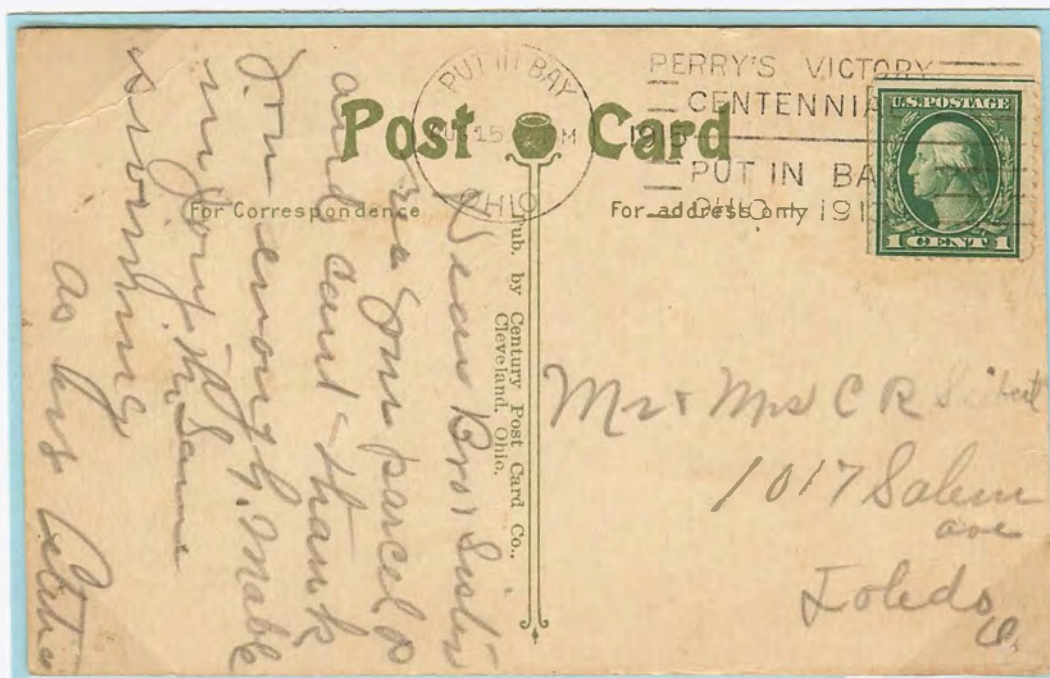 PUT IN BAY
15 M
OHIO
PERRY'S VICTORY
CENTENNIA
PUT IN BA
OHIO 191
U.S. POSTAGE
1 CENT 1
Post Card
For Correspondence
For address only
Pub. by Century Post Card Co.,
Cleveland, Ohio.
Dear Bro & Sister
your parcel
and can't thank
you enough. Mable
enjoying the same
as
Mr & Mrs C R
1017 Salem
ave
Toledo
O.